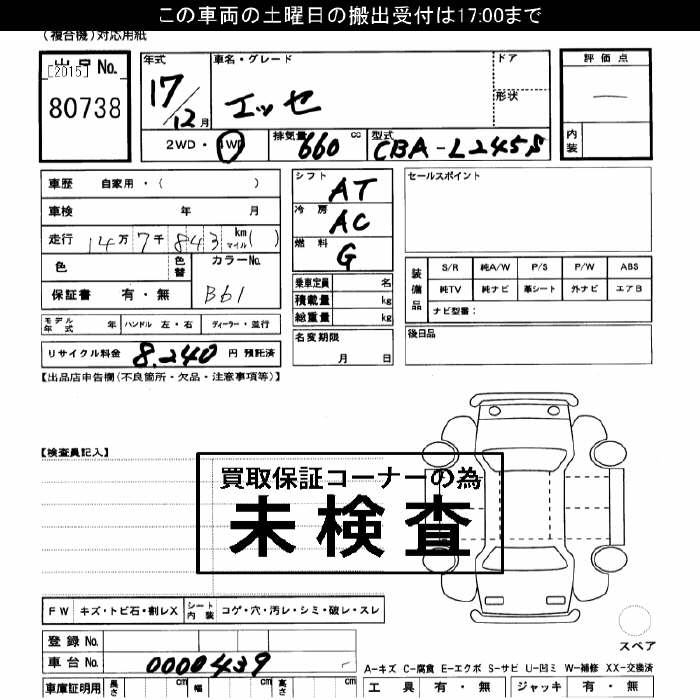 この車両の土曜日の搬出受付は17:00まで
(複合機)対応用紙
出品No.
[2015]
80738
年式
17/12月
車名・グレード
エッセ
ドア
形状
評価点
内装
2WD・4WD
排気量 660 cc
型式 CBA-L245S
車歴 自家用・( )
車検 年 月
走行 14万7千843 km マイル( )
色
色替
カラーNo.
B61
保証書 有・無
モデル年式 年 ハンドル 左・右 ディーラー・並行
リサイクル料金 8,240 円 預託済
シフト AT
冷房 AC
燃料 G
乗車定員 名
積載量 kg
総重量 kg
名変期限
月 日
セールスポイント
装備品
S/R 純A/W P/S P/W ABS
純TV 純ナビ 革シート 外ナビ エアB
ナビ型番:
後日品
【出品店申告欄(不良箇所・欠品・注意事項等)】
【検査員記入】
買取保証コーナーの為
未検査
FW キズ・トビ石・割レX シート内装 コゲ・穴・汚レ・シミ・破レ・スレ
登録No.
車台No. 0000439
車庫証明用 長さ cm 幅 cm 高さ cm
スペア
A-キズ C-腐食 E-エクボ S-サビ U-凹ミ W-補修 XX-交換済
工具 有・無 ジャッキ 有・無